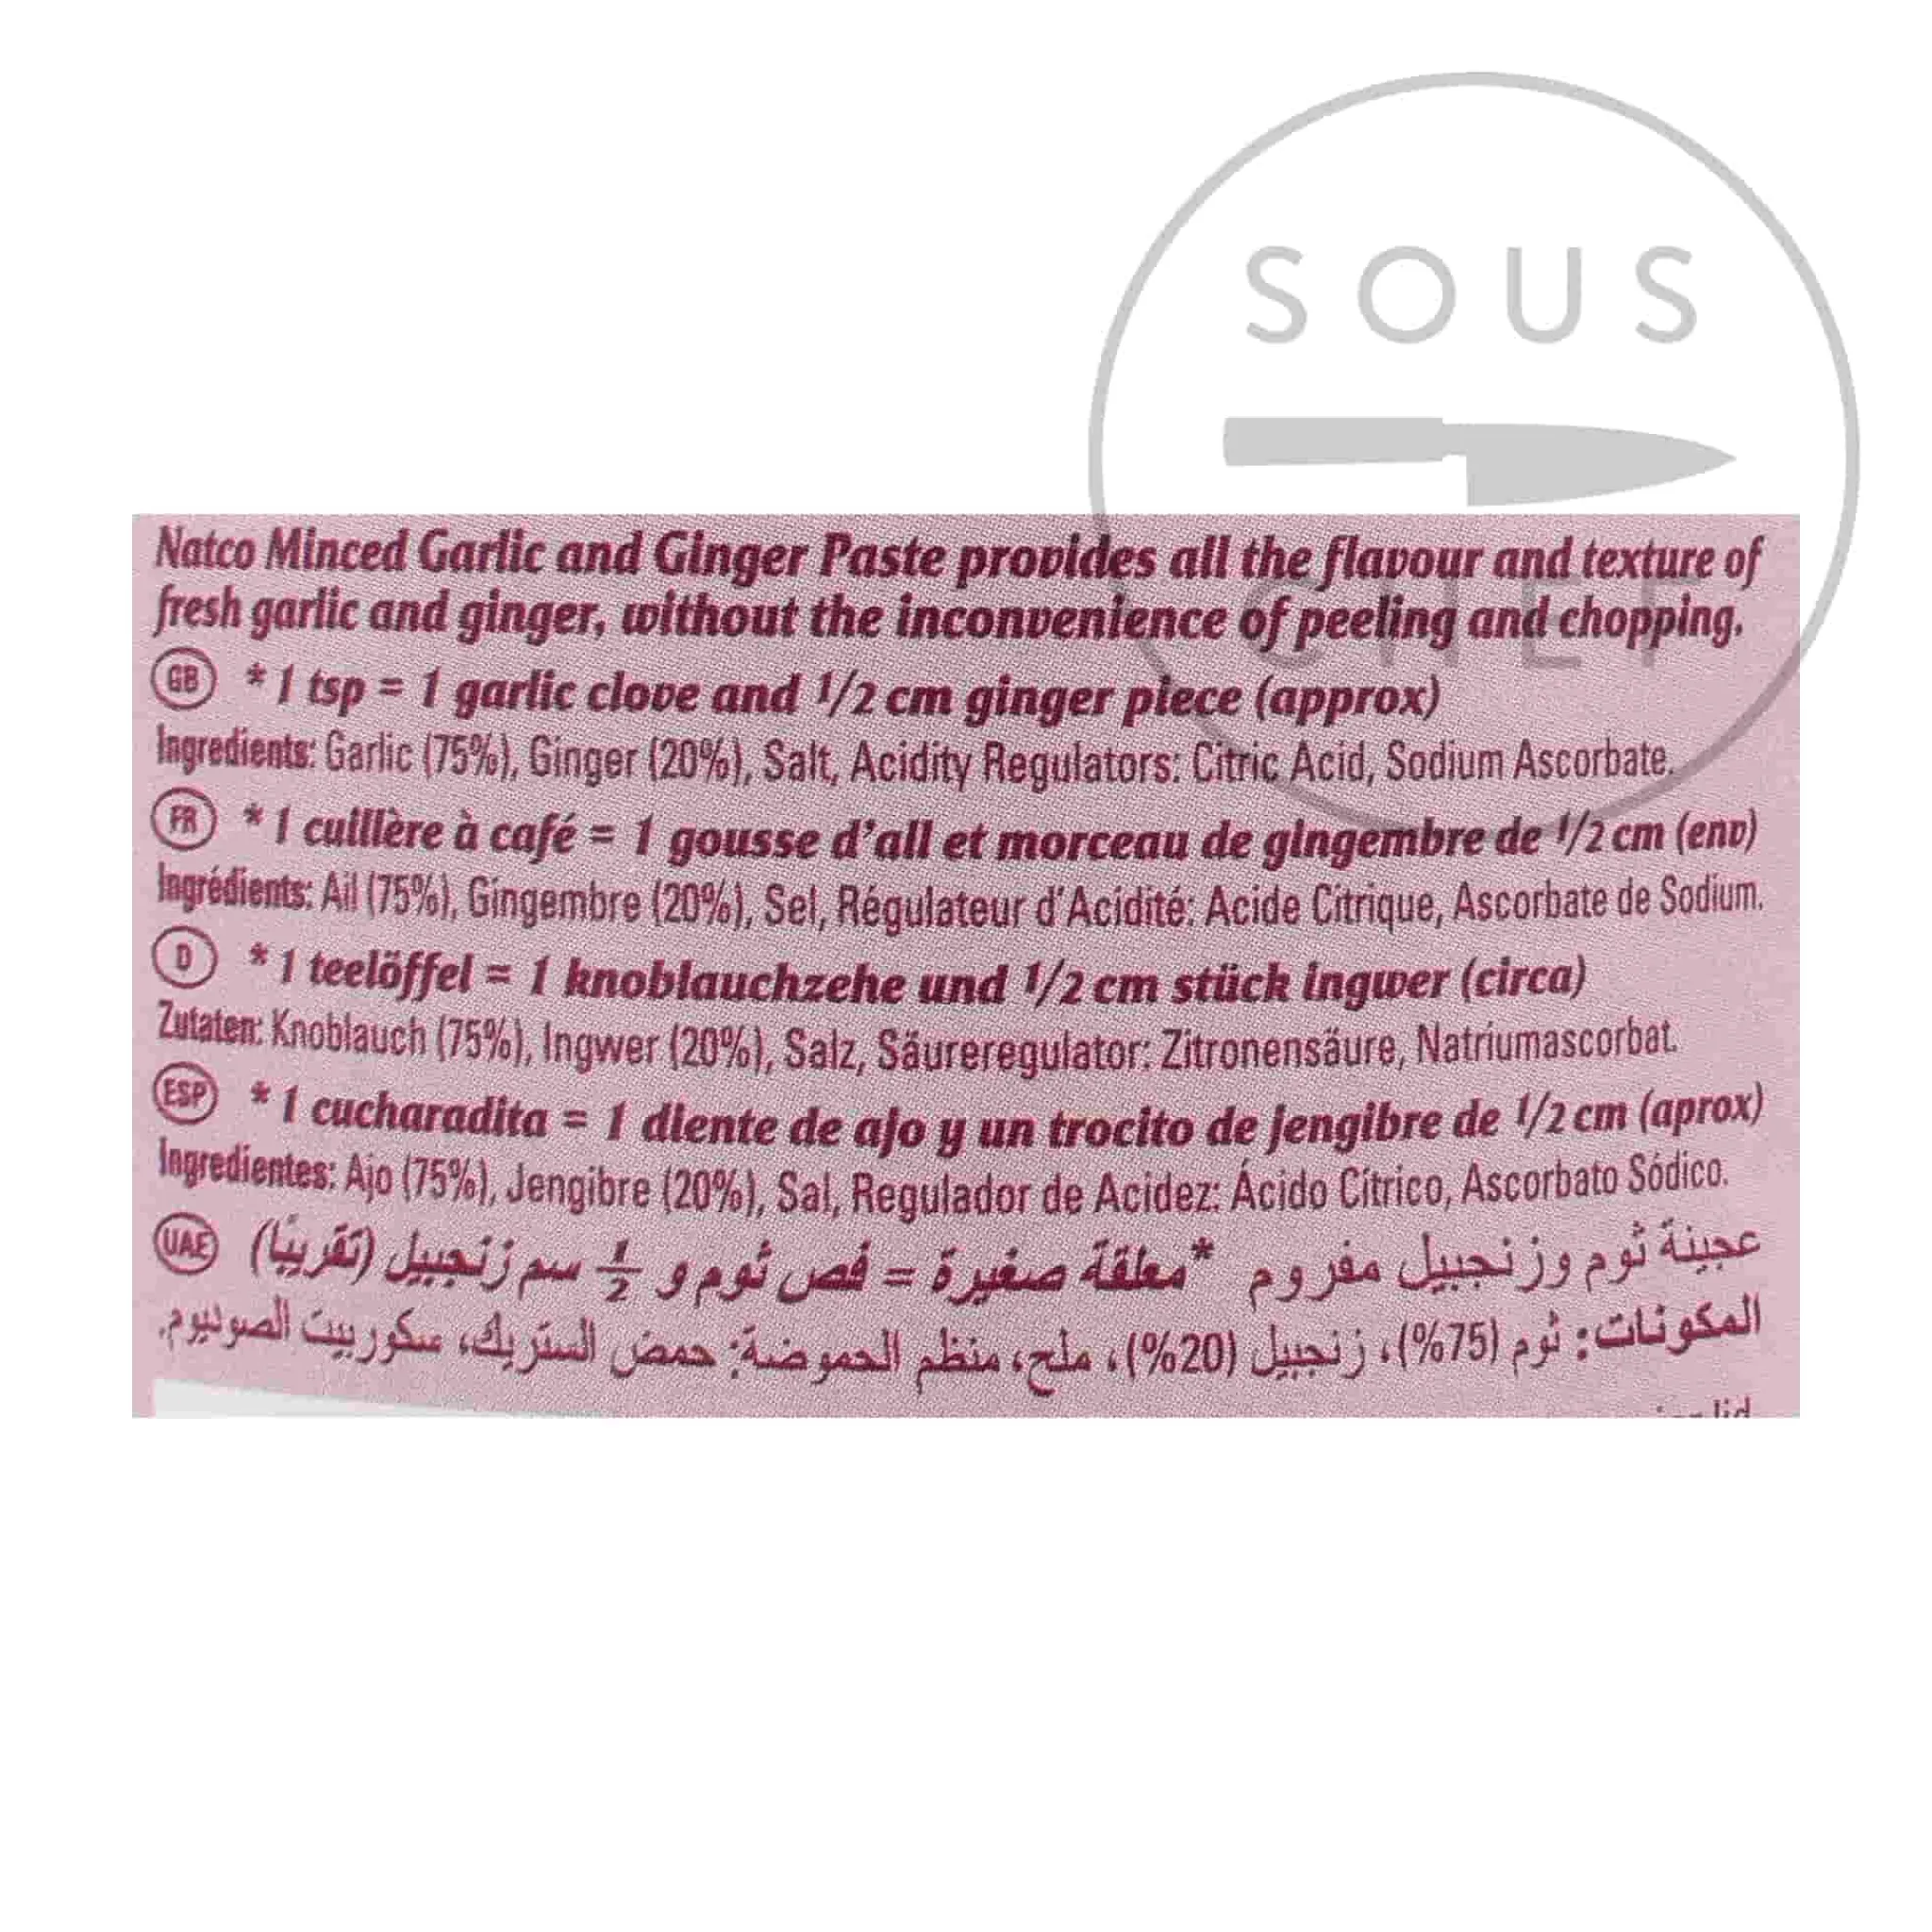 SOUS
CHEF
Natco Minced Garlic and Ginger Paste provides all the flavour and texture of
fresh garlic and ginger, without the inconvenience of peeling and chopping.
GB * 1 tsp = 1 garlic clove and 1/2 cm ginger piece (approx)
Ingredients: Garlic (75%), Ginger (20%), Salt, Acidity Regulators: Citric Acid, Sodium Ascorbate.
FR * 1 cuillère à café = 1 gousse d'ail et morceau de gingembre de 1/2 cm (env)
Ingrédients: Ail (75%), Gingembre (20%), Sel, Régulateur d'Acidité: Acide Citrique, Ascorbate de Sodium.
D * 1 teelöffel = 1 knoblauchzehe und 1/2 cm stück ingwer (circa)
Zutaten: Knoblauch (75%), Ingwer (20%), Salz, Säureregulator: Zitronensäure, Natriumascorbat.
ESP * 1 cucharadita = 1 diente de ajo y un trocito de jengibre de 1/2 cm (aprox)
Ingredientes: Ajo (75%), Jengibre (20%), Sal, Regulador de Acidez: Ácido Cítrico, Ascorbato Sódico.
عجينة ثوم وزنجبيل مفروم *معلقة صغيرة = فص ثوم و 1/2 سم زنجبيل (تقريبًا) UAE
المكونات: ثوم (75%)، زنجبيل (20%)، ملح، منظم الحموضة: حمض الستريك، سكوربيت الصوديوم.
lid